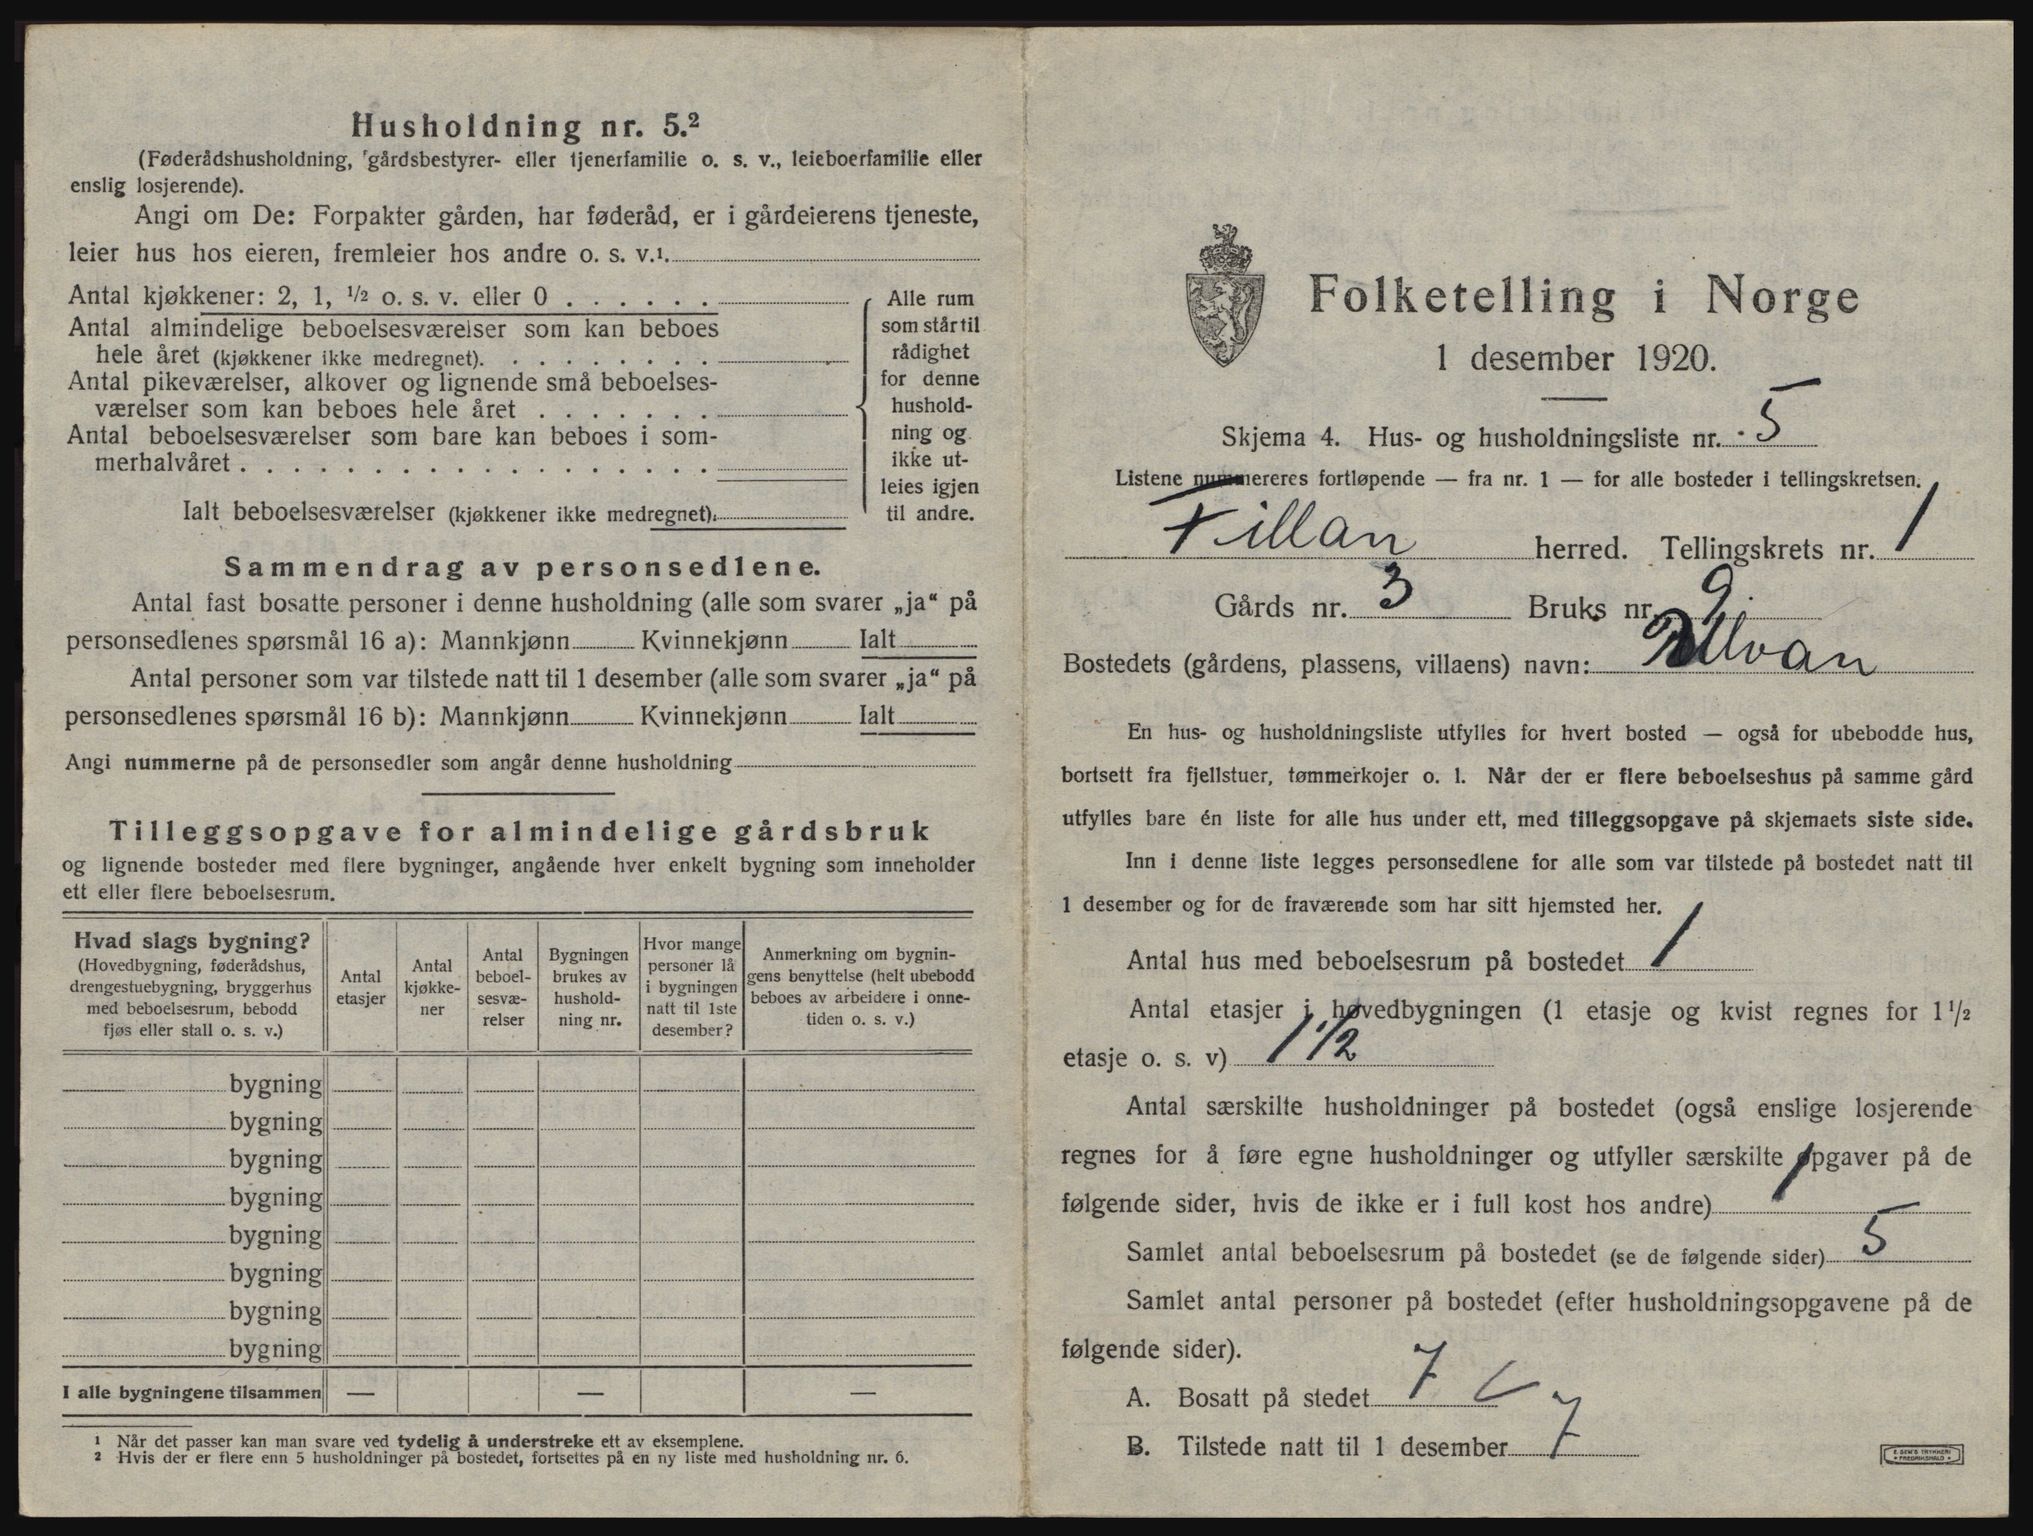 Husholdning nr. 5.²
(Føderådshusholdning, gårdsbestyrer- eller tjenerfamilie o. s. v., leieboerfamilie eller
enslig losjerende).
Angi om De: Forpakter gården, har føderåd, er i gårdeierens tjeneste,
leier hus hos eieren, fremleier hos andre o. s. v.¹.
Antal kjøkkener: 2, 1, ½ o. s. v. eller 0 . . . . . .
Antal almindelige beboelsesværelser som kan beboes
hele året (kjøkkener ikke medregnet). . . . . . . . .
Antal pikeværelser, alkover og lignende små beboelses-
værelser som kan beboes hele året . . . . . . .
Antal beboelsesværelser som bare kan beboes i som-
merhalvåret . . . . . . . . . . . . . . . . . .
Ialt beboelsesværelser (kjøkkener ikke medregnet):
Alle rum
som står til
rådighet
for denne
hushold-
ning og
ikke ut-
leies igjen
til andre.
Sammendrag av personsedlene.
Antal fast bosatte personer i denne husholdning (alle som svarer „ja“ på
personsedlenes spørsmål 16 a): Mannkjønn Kvinnekjønn Ialt
Antal personer som var tilstede natt til 1 desember (alle som svarer „ja“ på
personsedlenes spørsmål 16 b): Mannkjønn Kvinnekjønn Ialt
Angi nummerne på de personsedler som angår denne husholdning
Tilleggsopgave for almindelige gårdsbruk
og lignende bosteder med flere bygninger, angående hver enkelt bygning som inneholder
ett eller flere beboelsesrum.
Hvad slags bygning?
(Hovedbygning, føderådshus,
drengestuebygning, bryggerhus
med beboelsesrum, bebodd
fjøs eller stall o. s. v.)
Antal
etasjer
Antal
kjøkke-
ner
Antal
beboel-
sesvæ-
relser
Bygningen
brukes av
hushold-
ning nr.
Hvor mange
personer lå
i bygningen
natt til 1ste
desember?
Anmerkning om bygnin-
gens benyttelse (helt ubebodd
beboes av arbeidere i onne-
tiden o. s. v.)
bygning
bygning
bygning
bygning
bygning
bygning
bygning
bygning
I alle bygningene tilsammen — — —
¹ Når det passer kan man svare ved tydelig å understreke ett av eksemplene.
² Hvis der er flere enn 5 husholdninger på bostedet, fortsettes på en ny liste med husholdning nr. 6.
Folketelling i Norge
1 desember 1920.
Skjema 4. Hus- og husholdningsliste nr. 5
Listene nummereres fortløpende — fra nr. 1 — for alle bosteder i tellingskretsen.
Fillan herred. Tellingskrets nr. 1
Gårds nr. 3 Bruks nr. 9
Bostedets (gårdens, plassens, villaens) navn: Ulvan
En hus- og husholdningsliste utfylles for hvert bosted — også for ubebodde hus,
bortsett fra fjellstuer, tømmerkojer o. l. Når der er flere beboelseshus på samme gård
utfylles bare én liste for alle hus under ett, med tilleggsopgave på skjemaets siste side.
Inn i denne liste legges personsedlene for alle som var tilstede på bostedet natt til
1 desember og for de fraværende som har sitt hjemsted her.
Antal hus med beboelsesrum på bostedet 1
Antal etasjer i hovedbygningen (1 etasje og kvist regnes for 1½
etasje o. s. v) 1 1/2
Antal særskilte husholdninger på bostedet (også enslige losjerende
regnes for å føre egne husholdninger og utfyller særskilte opgaver på de
følgende sider, hvis de ikke er i full kost hos andre) 1
Samlet antal beboelsesrum på bostedet (se de følgende sider) 5
Samlet antal personer på bostedet (efter husholdningsopgavene på de
følgende sider).
A. Bosatt på stedet 7
B. Tilstede natt til 1 desember 7
E. SEM'S TRYKKERI
• FREDRIKSHALD •